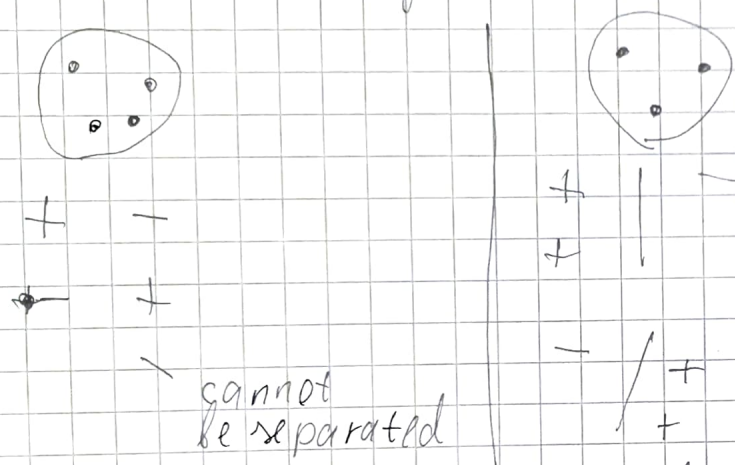 + -
- +
cannot
be separated
+ | -
+
- / +
+